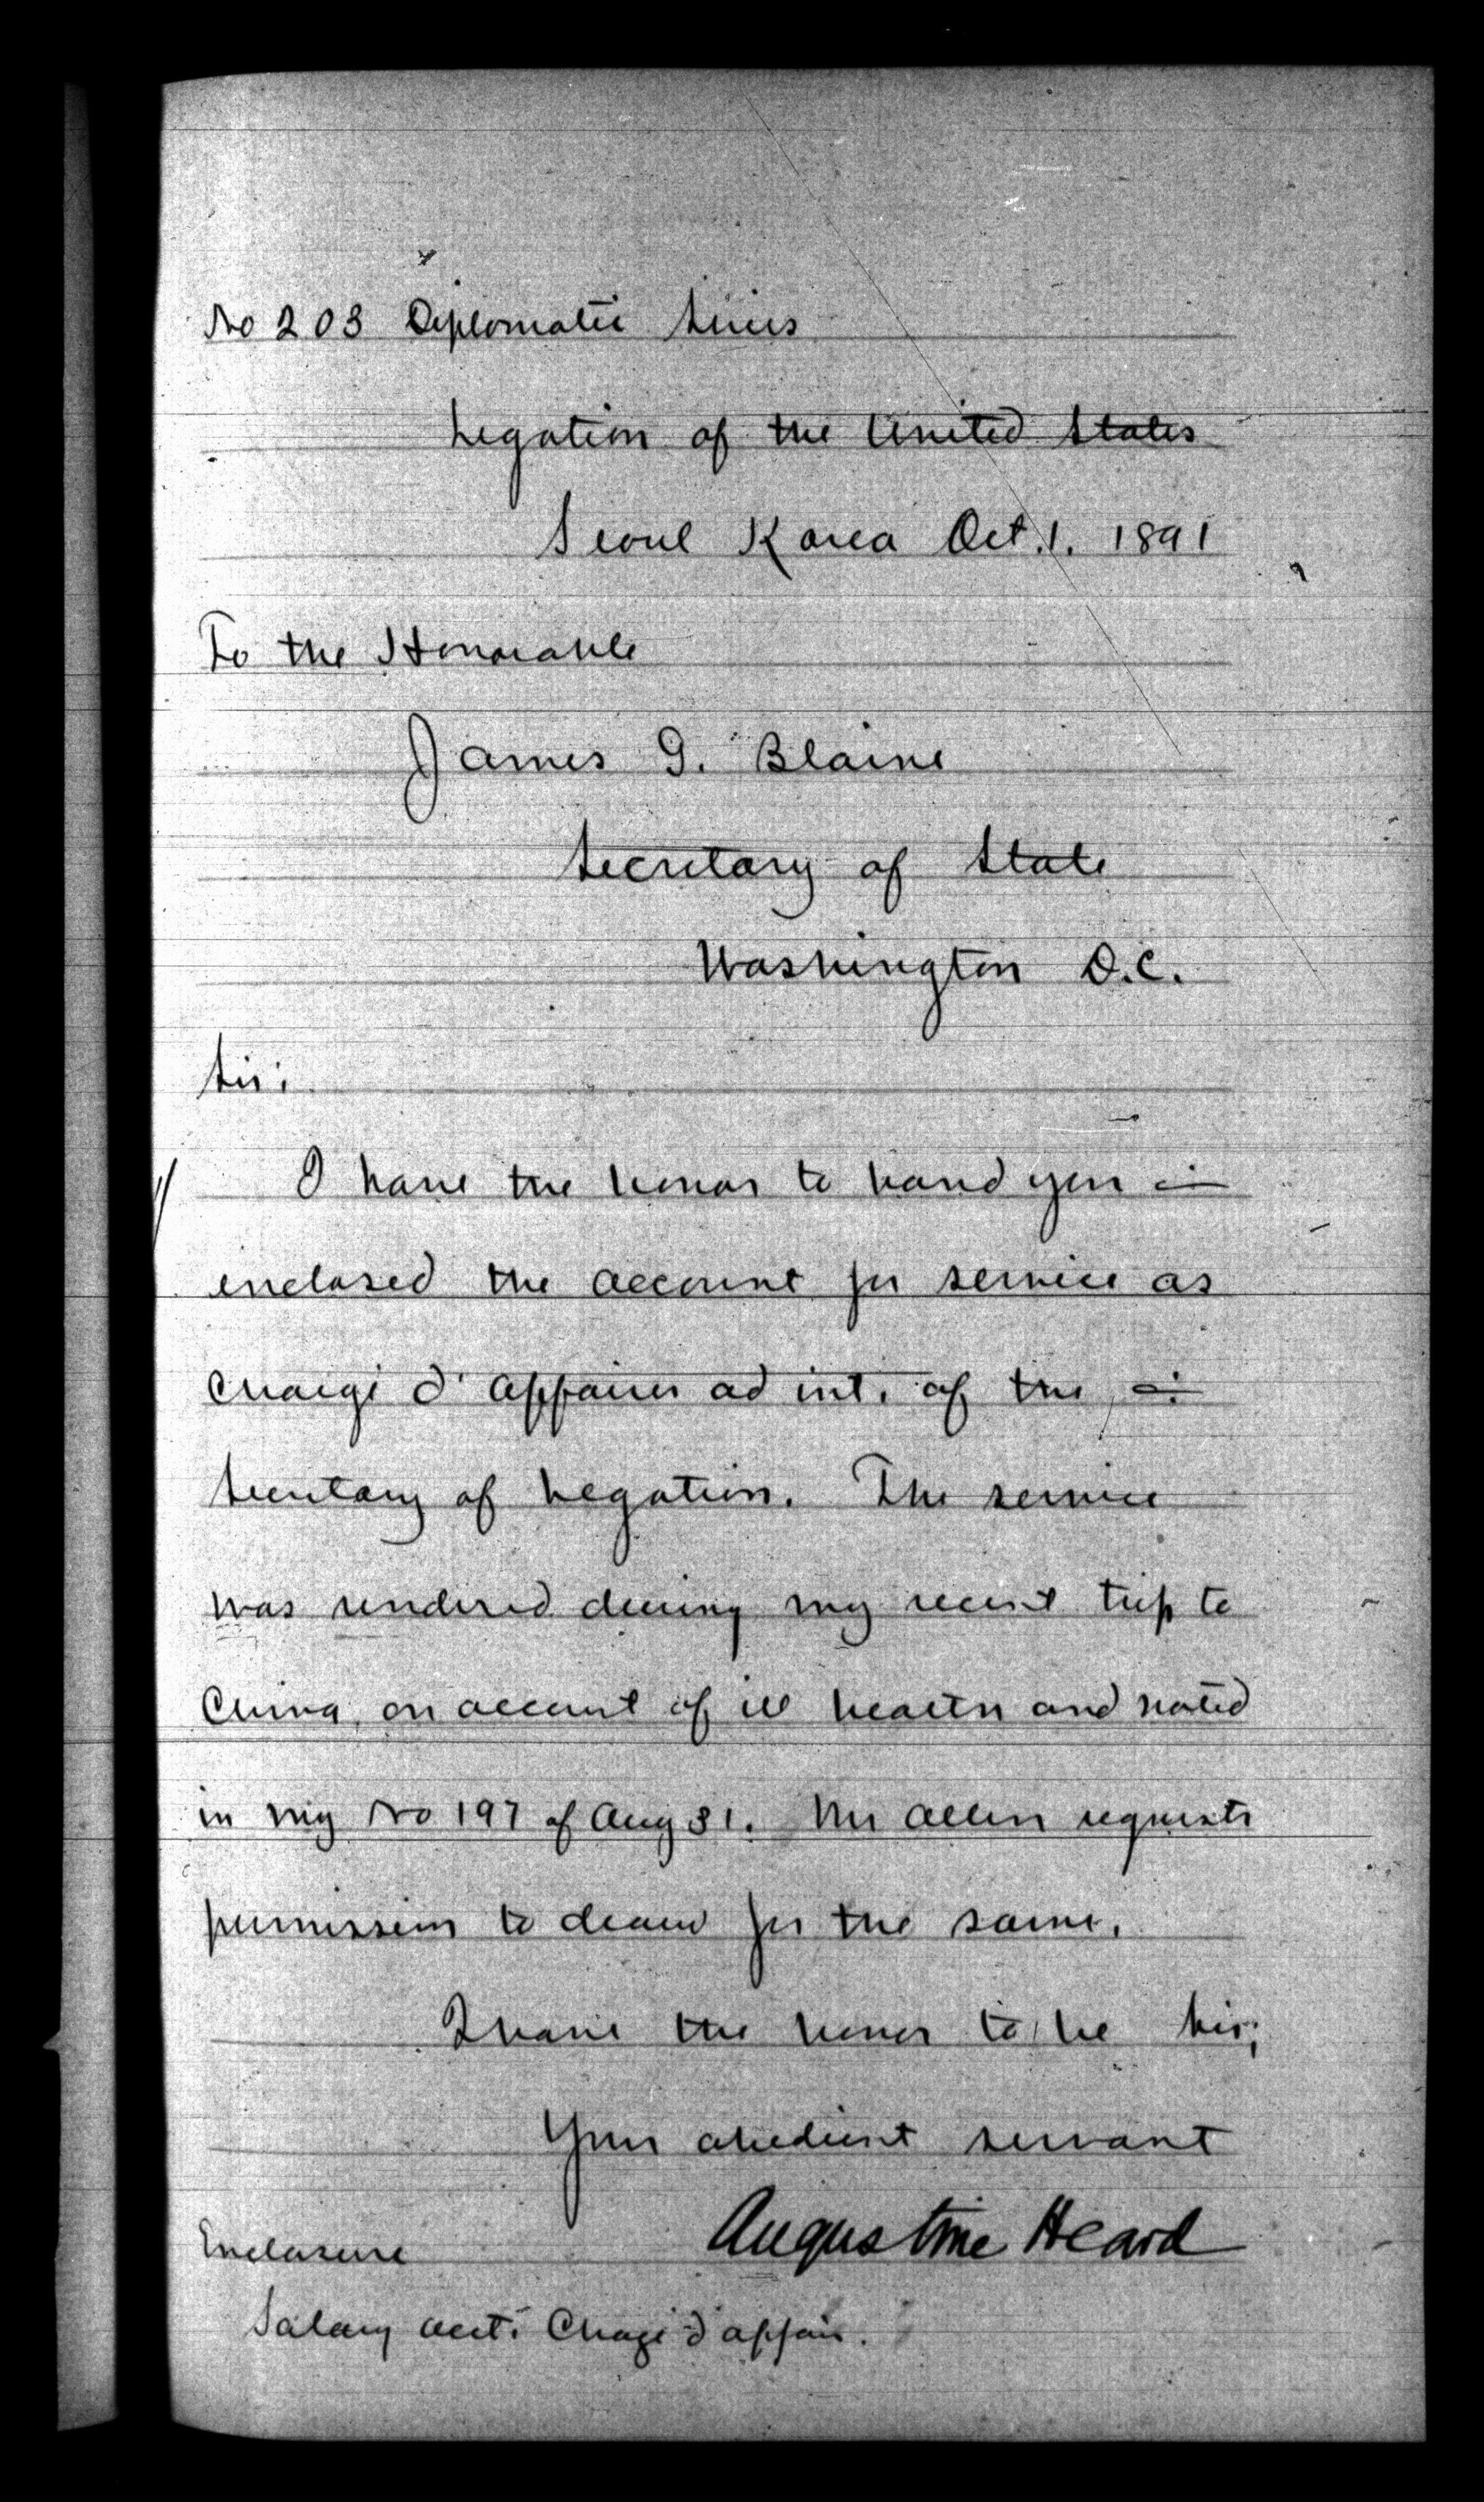 No 203 Diplomatic Series
Legation of the United States
Seoul Korea Oct. 1. 1891
To the Honorable
James G. Blaine
Secretary of State
Washington D.C.
Sir:
I have the honor to hand you
enclosed the account for service as
Chargé d'affaires ad int. of the
Secretary of Legation. The service
was rendered during my recent trip to
China, on account of ill health and noted
in my No 197 of Aug 31. Mr Allen requests
permission to draw for the same.
I have the honor to be Sir;
Your obedient servant
Augustine Heard
Enclosure
Salary acct. Chagé d'affair.